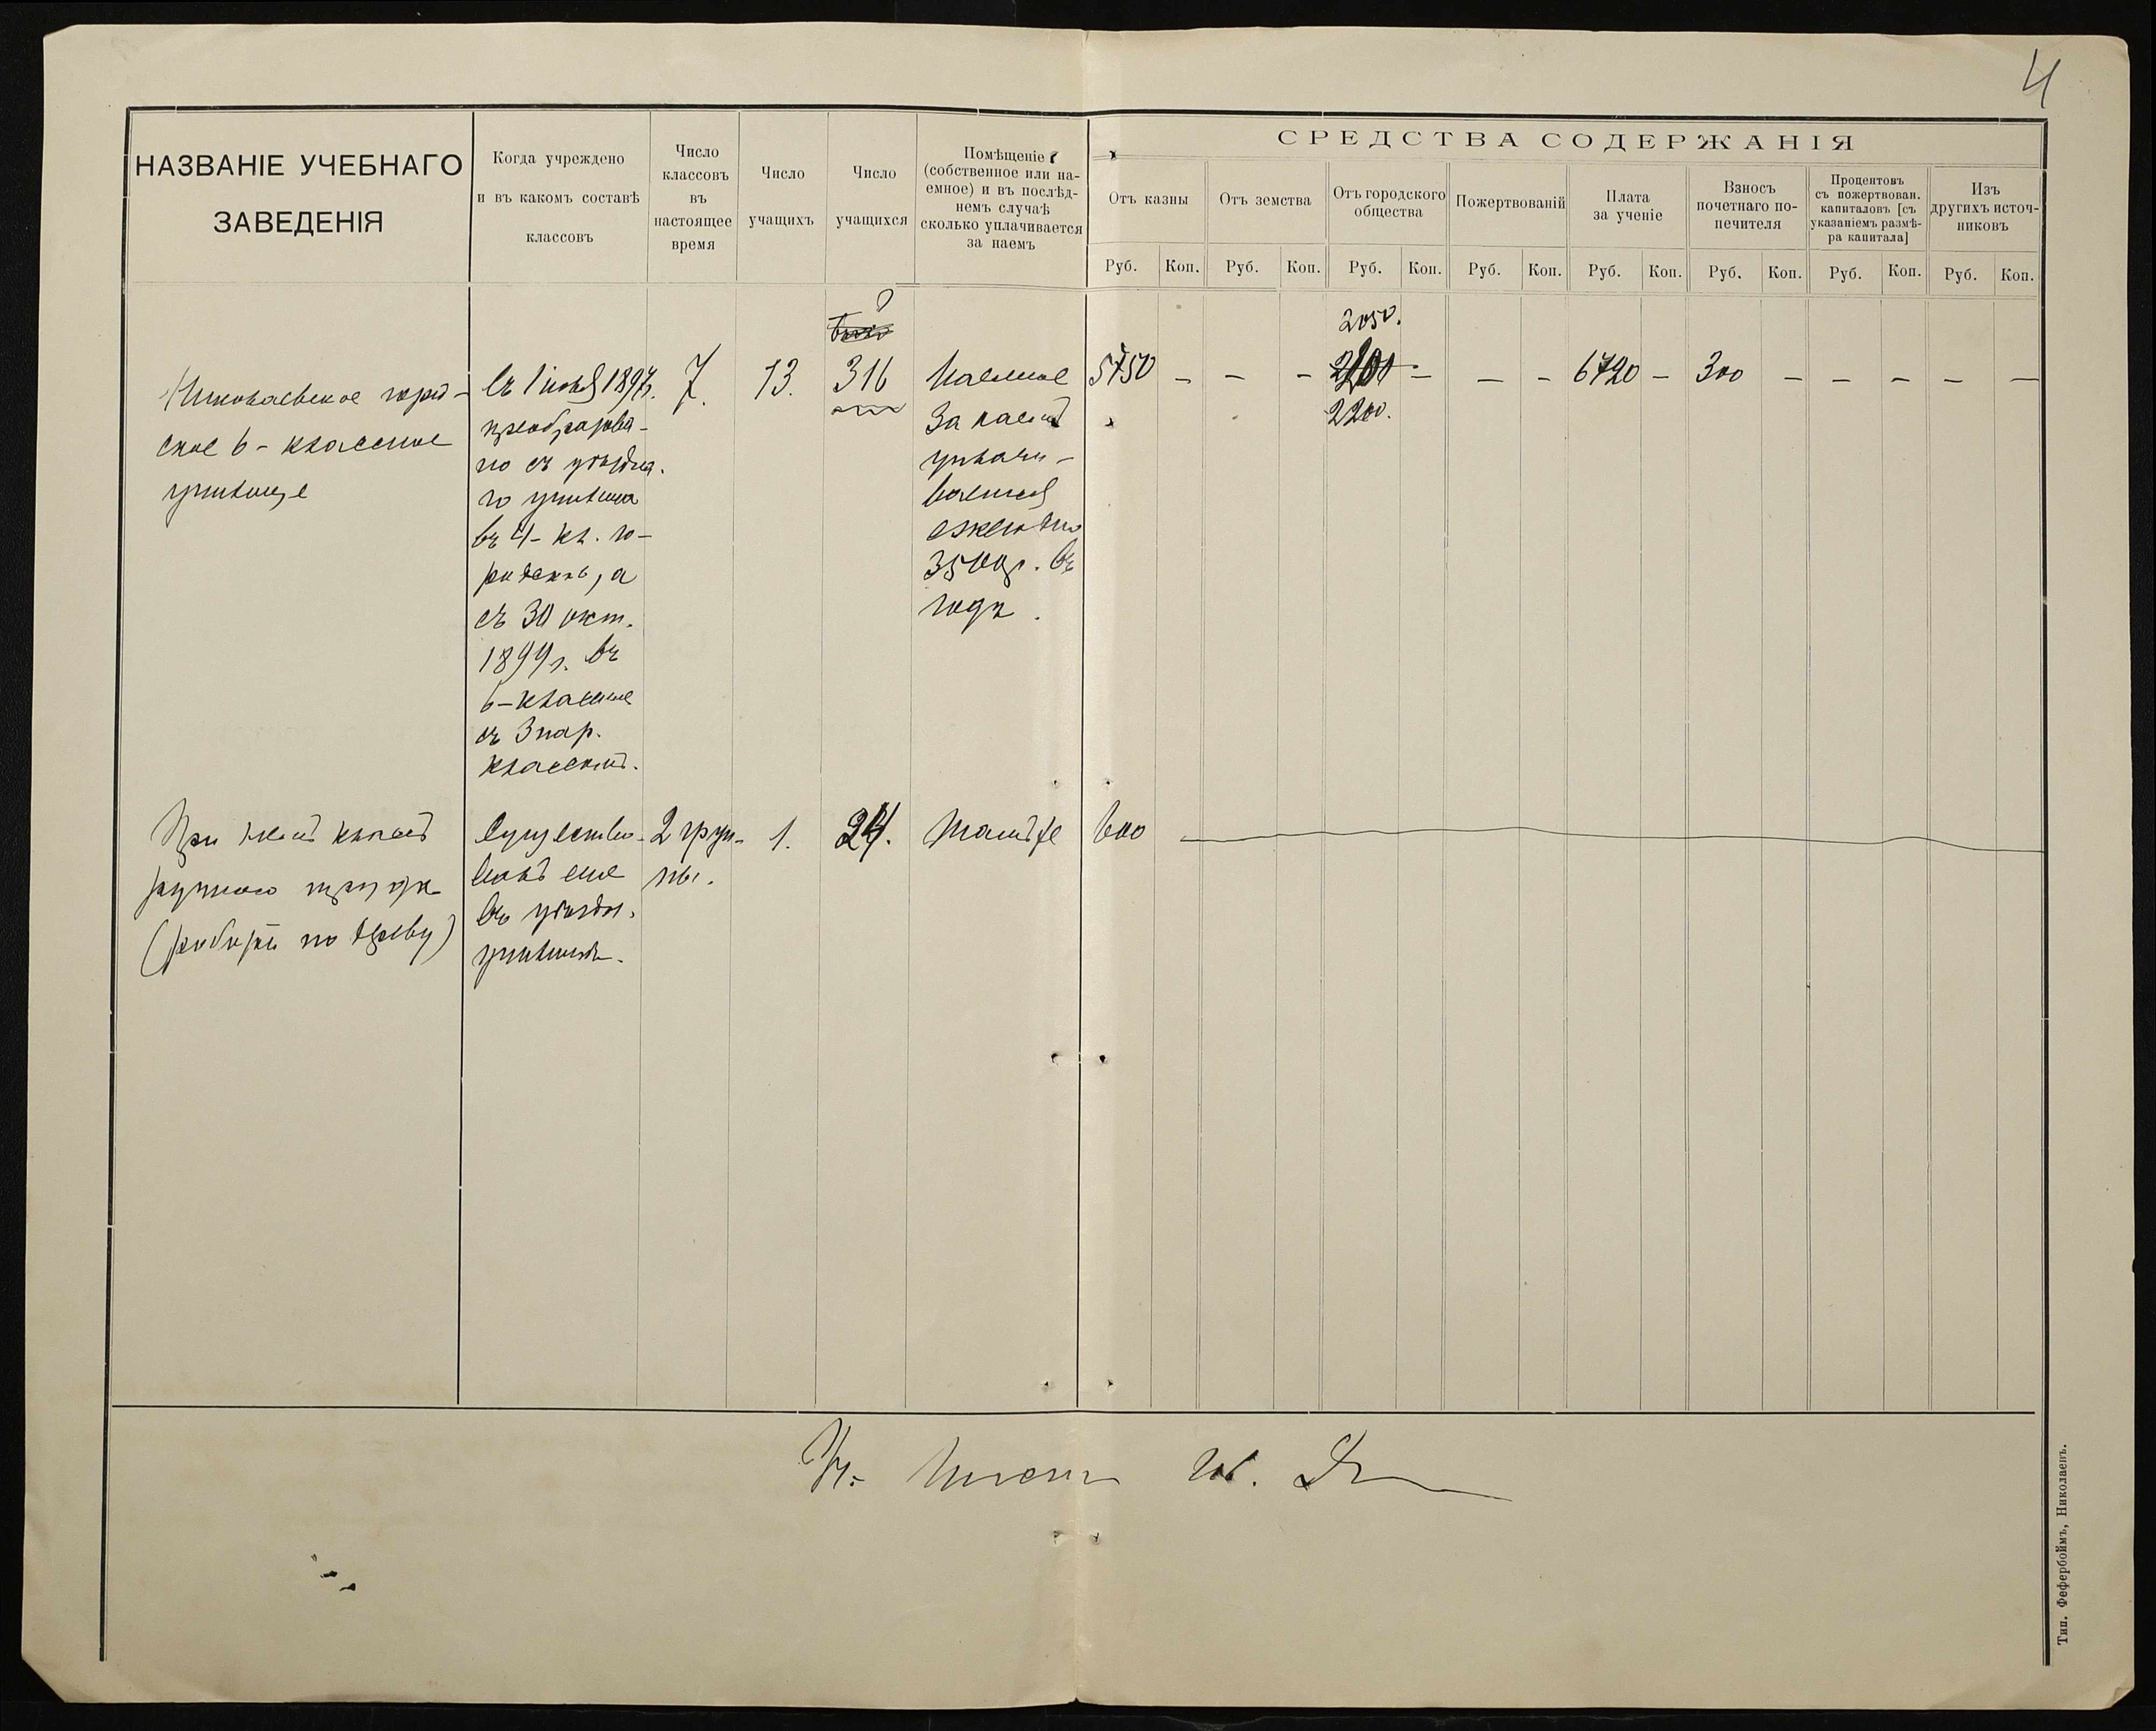 4
НАЗВАНІЕ УЧЕБНАГО
ЗАВЕДЕНІЯ
Когда учреждено
и въ какомъ составѣ
классовъ
Число
классовъ
въ
настоящее
время
Число
учащихъ
Число
учащихся
Помѣщеніе
(собственное или на-
емное) и въ послѣд-
немъ случаѣ
сколько уплачивается
за наемъ
СРЕДСТВА СОДЕРЖАНІЯ
Отъ казны
Отъ земства
Отъ городского
общества
Пожертвованій
Плата
за ученіе
Взносъ
почетнаго по-
печителя
Процентовъ
съ пожертвован.
капиталовъ [съ
указаніемъ размѣ-
ра капитала]
Изъ
другихъ источ-
никовъ
Руб. Коп. Руб. Коп. Руб. Коп. Руб. Коп. Руб. Коп. Руб. Коп. Руб. Коп. Руб. Коп.
Николаевское город-
ское 6-классное
училище
съ 1 іюля 1897г.
преобразова-
но съ уѣзднa-
го училища
въ 4-кл. го-
родское, а
съ 30 окт.
1899г. въ
6-классное
съ 3 пар.
классами.
7.
13.
?
316
Наемное
За наемъ
уплачи-
вается
ежегодно
3500р. въ
годъ.
5750 - - -
2050.
2200.
- - - 6720 - 300 - - - - -
При немъ классъ
ручного труда
(работы по дереву)
Существо-
валъ еще
въ уѣздн.
училищѣ.
2 груп-
пы.
1.
24.
Тамъ же
600
Тип. Фефербоймъ, Николаевъ.